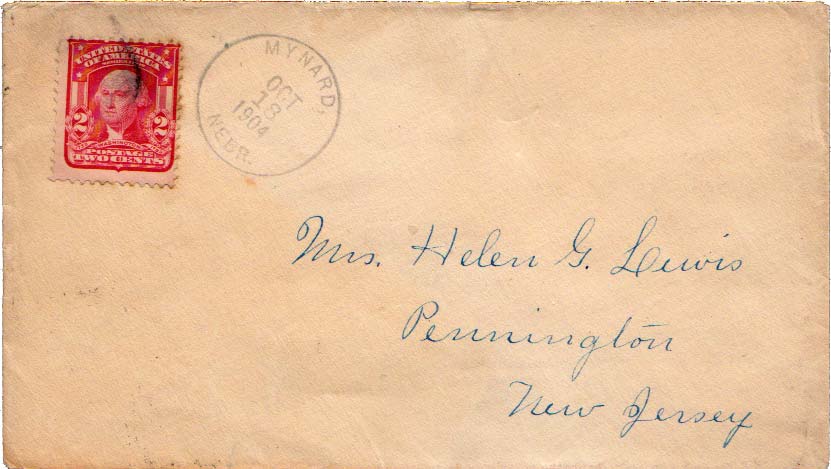 UNITED STATES
OF AMERICA
2 WASHINGTON 2
POSTAGE
TWO CENTS
MYNARD,
OCT
18
1904
NEBR.
Mrs. Helen G. Lewis
Pennington
New Jersey